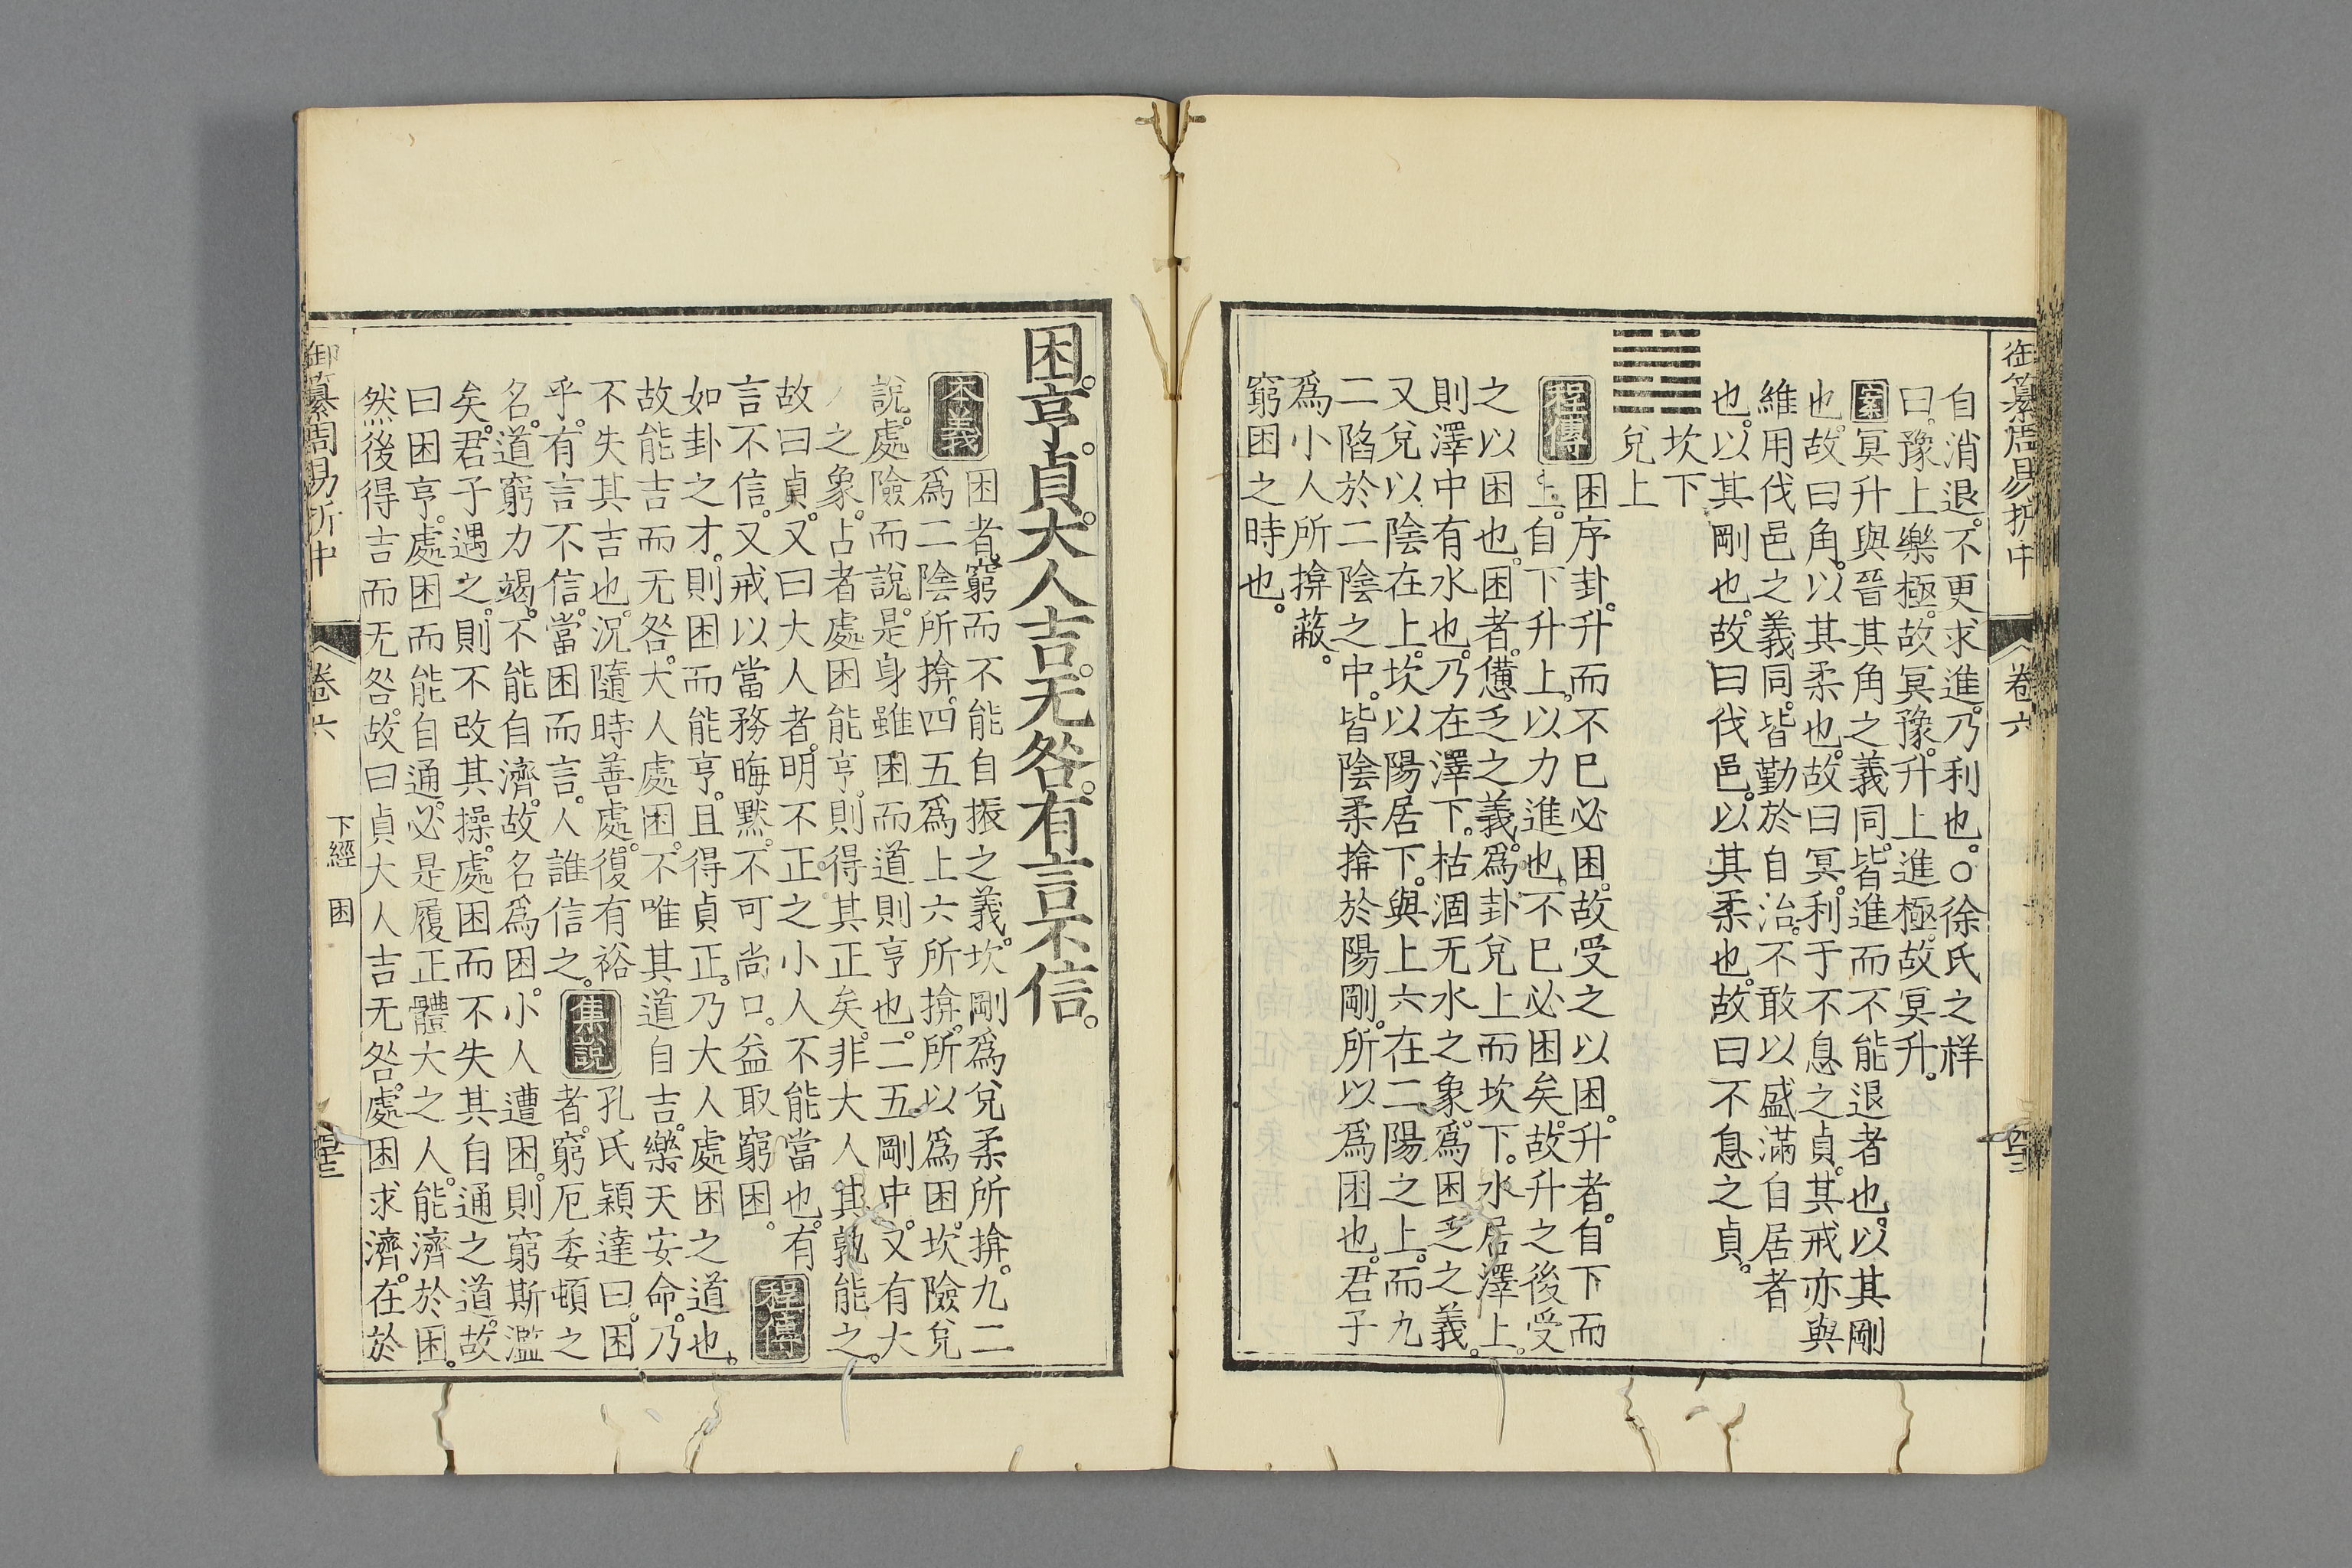 御纂周易折中
卷六
自消退。不更求進。乃利也。○徐氏之祥
曰。豫上樂極。故冥豫。升上進極。故冥升。
案冥升與晉其角之義同。皆進而不能退者也。以其剛
也。故曰角。以其柔也。故曰冥。利于不息之貞。其戒亦與
維用伐邑之義同。皆勤於自治。不敢以盛滿自居者
也。以其剛也。故曰伐邑。以其柔也。故曰不息之貞。
坎下
兌上
程傳
困序卦。升而不已必困。故受之以困。升者。自下而
上。自下升上。以力進也。不已必困矣。故升之後受
之以困也。困者。憊乏之義。爲卦兌上而坎下。水居澤上。
則澤中有水也。乃在澤下。枯涸无水之象。爲困乏之義。
又兌以陰在上。坎以陽居下。與上六在二陽之上。而九
二陷於二陰之中。皆陰柔揜於陽剛。所以爲困也。君子
爲小人所揜蔽。
窮困之時也。
困。亨。貞。大人吉。无咎。有言不信。
本義
困者。窮而不能自振之義。坎剛爲兌柔所揜。九二
爲二陰所揜。四五爲上六所揜。所以爲困。坎險兌
說。處險而說。是身雖困而道則亨也。二五剛中。又有大
人之象。占者處困能亨。則得其正矣。非大人其孰能之。
故曰貞。又曰大人者。明不正之小人不能當也。有
言不信。又戒以當務晦默。不可尚口。益取窮困。
程傳
如卦之才。則困而能亨。且得貞正。乃大人處困之道也。
故能吉而无咎。大人處困。不唯其道自吉。樂天安命。乃
不失其吉也。況隨時善處。復有裕
乎。有言不信。當困而言。人誰信之。
集說
孔氏穎達曰。困
者。窮厄委頓之
名。道窮力竭。不能自濟。故名爲困。小人遭困。則窮斯濫
矣。君子遇之。則不改其操。處困而不失其自通之道。故
曰困亨。處困而能自通。必是履正體大之人。能濟於困。
然後得吉而无咎。故曰貞大人吉无咎。處困求濟。在於
御纂周易折中
卷六
下經 困